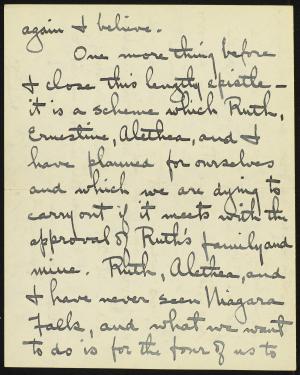 again I believe.
One more thing before
I close this lengthy epistle –
it is a scheme which Ruth,
Ernestine, Alethea, and I
have planned for ourselves
and which we are dying to
carry out if it meets with the
approval of Ruth's family and
mine. Ruth, Alethea, and
I have never seen Niagara
Falls, and what we want
to do is for the four of us to